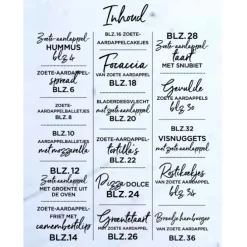 Inhoud
Zoete-aardappel-
HUMMUS
blz 4
ZOETE-AARDAPPEL-
spread
BLZ.6
ZOETE-
AARDAPPELBALLETJES
BLZ.8
BLZ.10
AARDAPPELBALLETJES
met mozzarella
BLZ.12
Zoete-aardappel-
MET GROENTE UIT
DE OVEN
ZOETE-AARDAPPEL-
FRIET MET
camembertdip
BLZ.14
BLZ.16 ZOETE-
AARDAPPELCAKEJES
Focaccia
VAN ZOETE AARDAPPEL
BLZ.18
BLADERDEEGVLECHT
met zoete-aardappel
BLZ.20
ZOETE-AARDAPPEL-
tortilla's
BLZ.22
Pizza DOLCE
BLZ.24
Groentetaart
MET ZOETE AARDAPPEL
BLZ.26
BLZ.28
Zoete-aardappel-
taart
MET SNIJBIET
Gevulde
ZOETE AARDAPPELS
blz 30
BLZ.32
VISNUGGETS
met zoete-aardappel
Rostikoekjes
VAN ZOETE AARDAPPEL
blz 34
Broodje hamburger
VAN ZOETE AARDAPPEL
BLZ.36